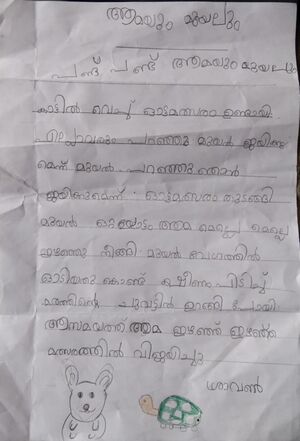 ആമയും മുയലും
പണ്ട് പണ്ട് ആമയും മുയലും
കാട്ടിൽ വെച്ച് ഓട്ടമത്സരം ഉണ്ടായി.
എല്ലാവരും പറഞ്ഞു മുയൽ ജയിക്കു
മെന്ന് മുയൽ പറഞ്ഞു ഞാൻ
ജയിക്കുമെന്ന്. ഓട്ടമത്സരം തുടങ്ങി
മുയൽ ഒറ്റയോട്ടം ആമ മെല്ലെ മെല്ലെ
ഇഴഞ്ഞു നീങ്ങി. മുയൽ വേഗത്തിൽ
ഓടിയതു കൊണ്ട് ക്ഷീണം പിടിച്ച്
മരത്തിന്റെ ചുവട്ടിൽ ഉറങ്ങി പോയി
ആസമയത്ത് ആമ ഇഴഞ്ഞ് ഇഴഞ്ഞ്
മത്സരത്തിൽ വിജയിച്ചു
ശ്രാവൺ